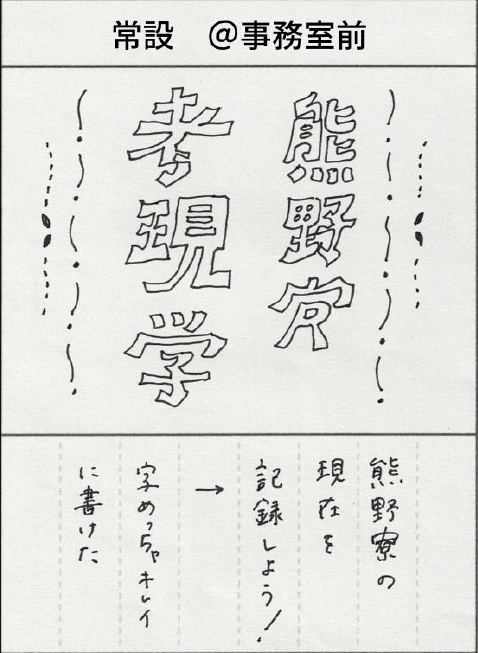 常設　@事務室前
熊野寮
考現学
熊野寮の
現在を
記録しよう!
→
字めっちゃキレイ
に書けた